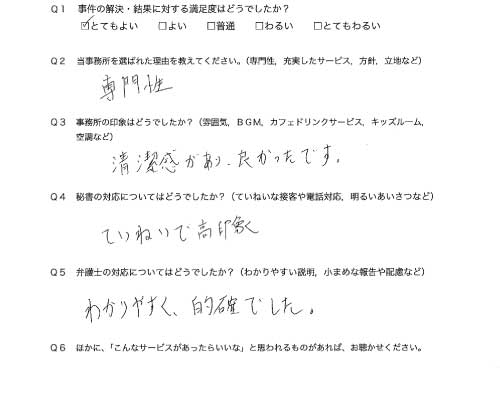 Q1　事件の解決・結果に対する満足度はどうでしたか？
☑とてもよい　□よい　□普通　□わるい　□とてもわるい
Q2　当事務所を選ばれた理由を教えてください。（専門性，充実したサービス，方針，立地など）
専門性
Q3　事務所の印象はどうでしたか？（雰囲気，BGM，カフェドリンクサービス，キッズルーム，
空調など）
清潔感があり、良かったです。
Q4　秘書の対応についてはどうでしたか？（ていねいな接客や電話対応，明るいあいさつなど）
ていねいで高印象
Q5　弁護士の対応についてはどうでしたか？（わかりやすい説明，小まめな報告や配慮など）
わかりやすく、的確でした。
Q6　ほかに、「こんなサービスがあったらいいな」と思われるものがあれば、お聴かせください。